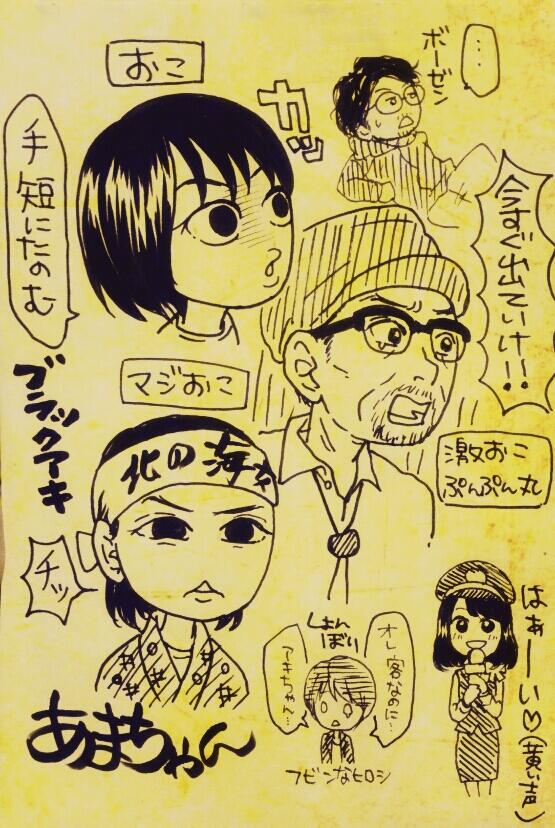 おこ
ガッ
ボーゼン
…
手短にたのむ
今すぐ出ていけ!!
マジおこ
ブラックアキ
北の海女
激おこ
ぷんぷん丸
チッ
しょん
ぼり
オレ客なのに…
アキちゃん…
フビンなヒロシ
はぁーい♡(黄い声)
あまちゃん